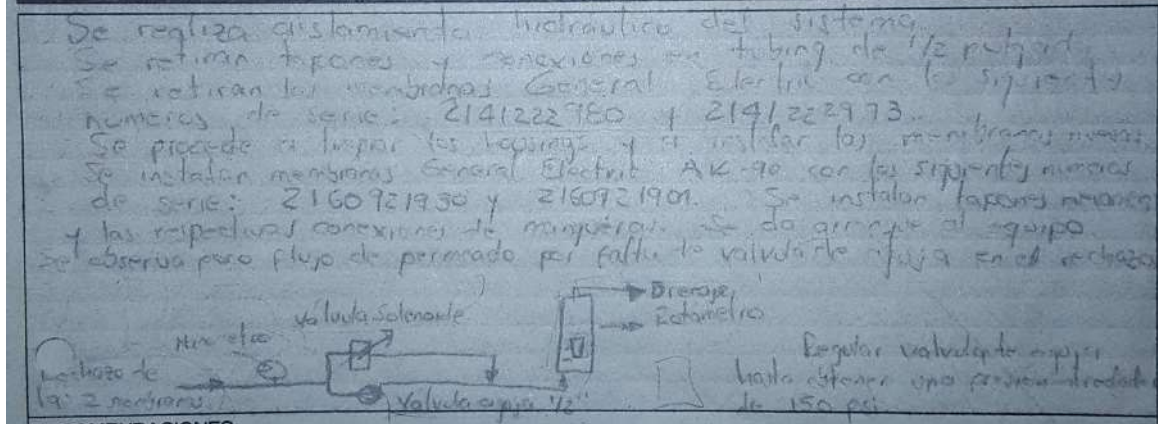 Se realiza aislamiento hidraulico del sistema.
Se retiran tapones y conexiones en tubing de 1/2 pulgad
Se retiran las membranas General Electric con los siguientes
numeros de serie: 2141222980 y 2141222973.
Se procede a limpiar los housings y a instalar las membranas nuevas.
Se instalan membranas General Electric AK-90 con los siguientes numeros
de serie: 2160921930 y 2160921901. Se instalan tapones
y las respectivas conexiones de mangueras. Se da arranque al equipo.
Se observa poco flujo de permeado por falta de valvula de aguja en el rechazo
Drenaje
Valvula Solenoide
Rotametro
Rechazo de
las 2 membranas
Valvula aguja 1/2"
Regular valvula de aguja
hasta obtener una presion alrededor
de 150 psi.